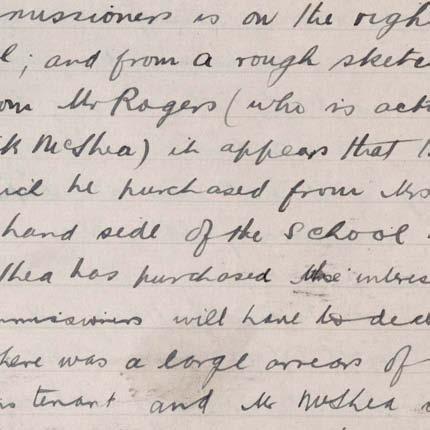 missioners is on the righ
l; and from a rough sketc
om Mr Rogers (who is act
k McShea) it appears that
he purchased from Mrs
hand side of the School
Shea has purchased the interes
mmissioners will have to deal
here was a large arrears of
as tenant and Mr McShea